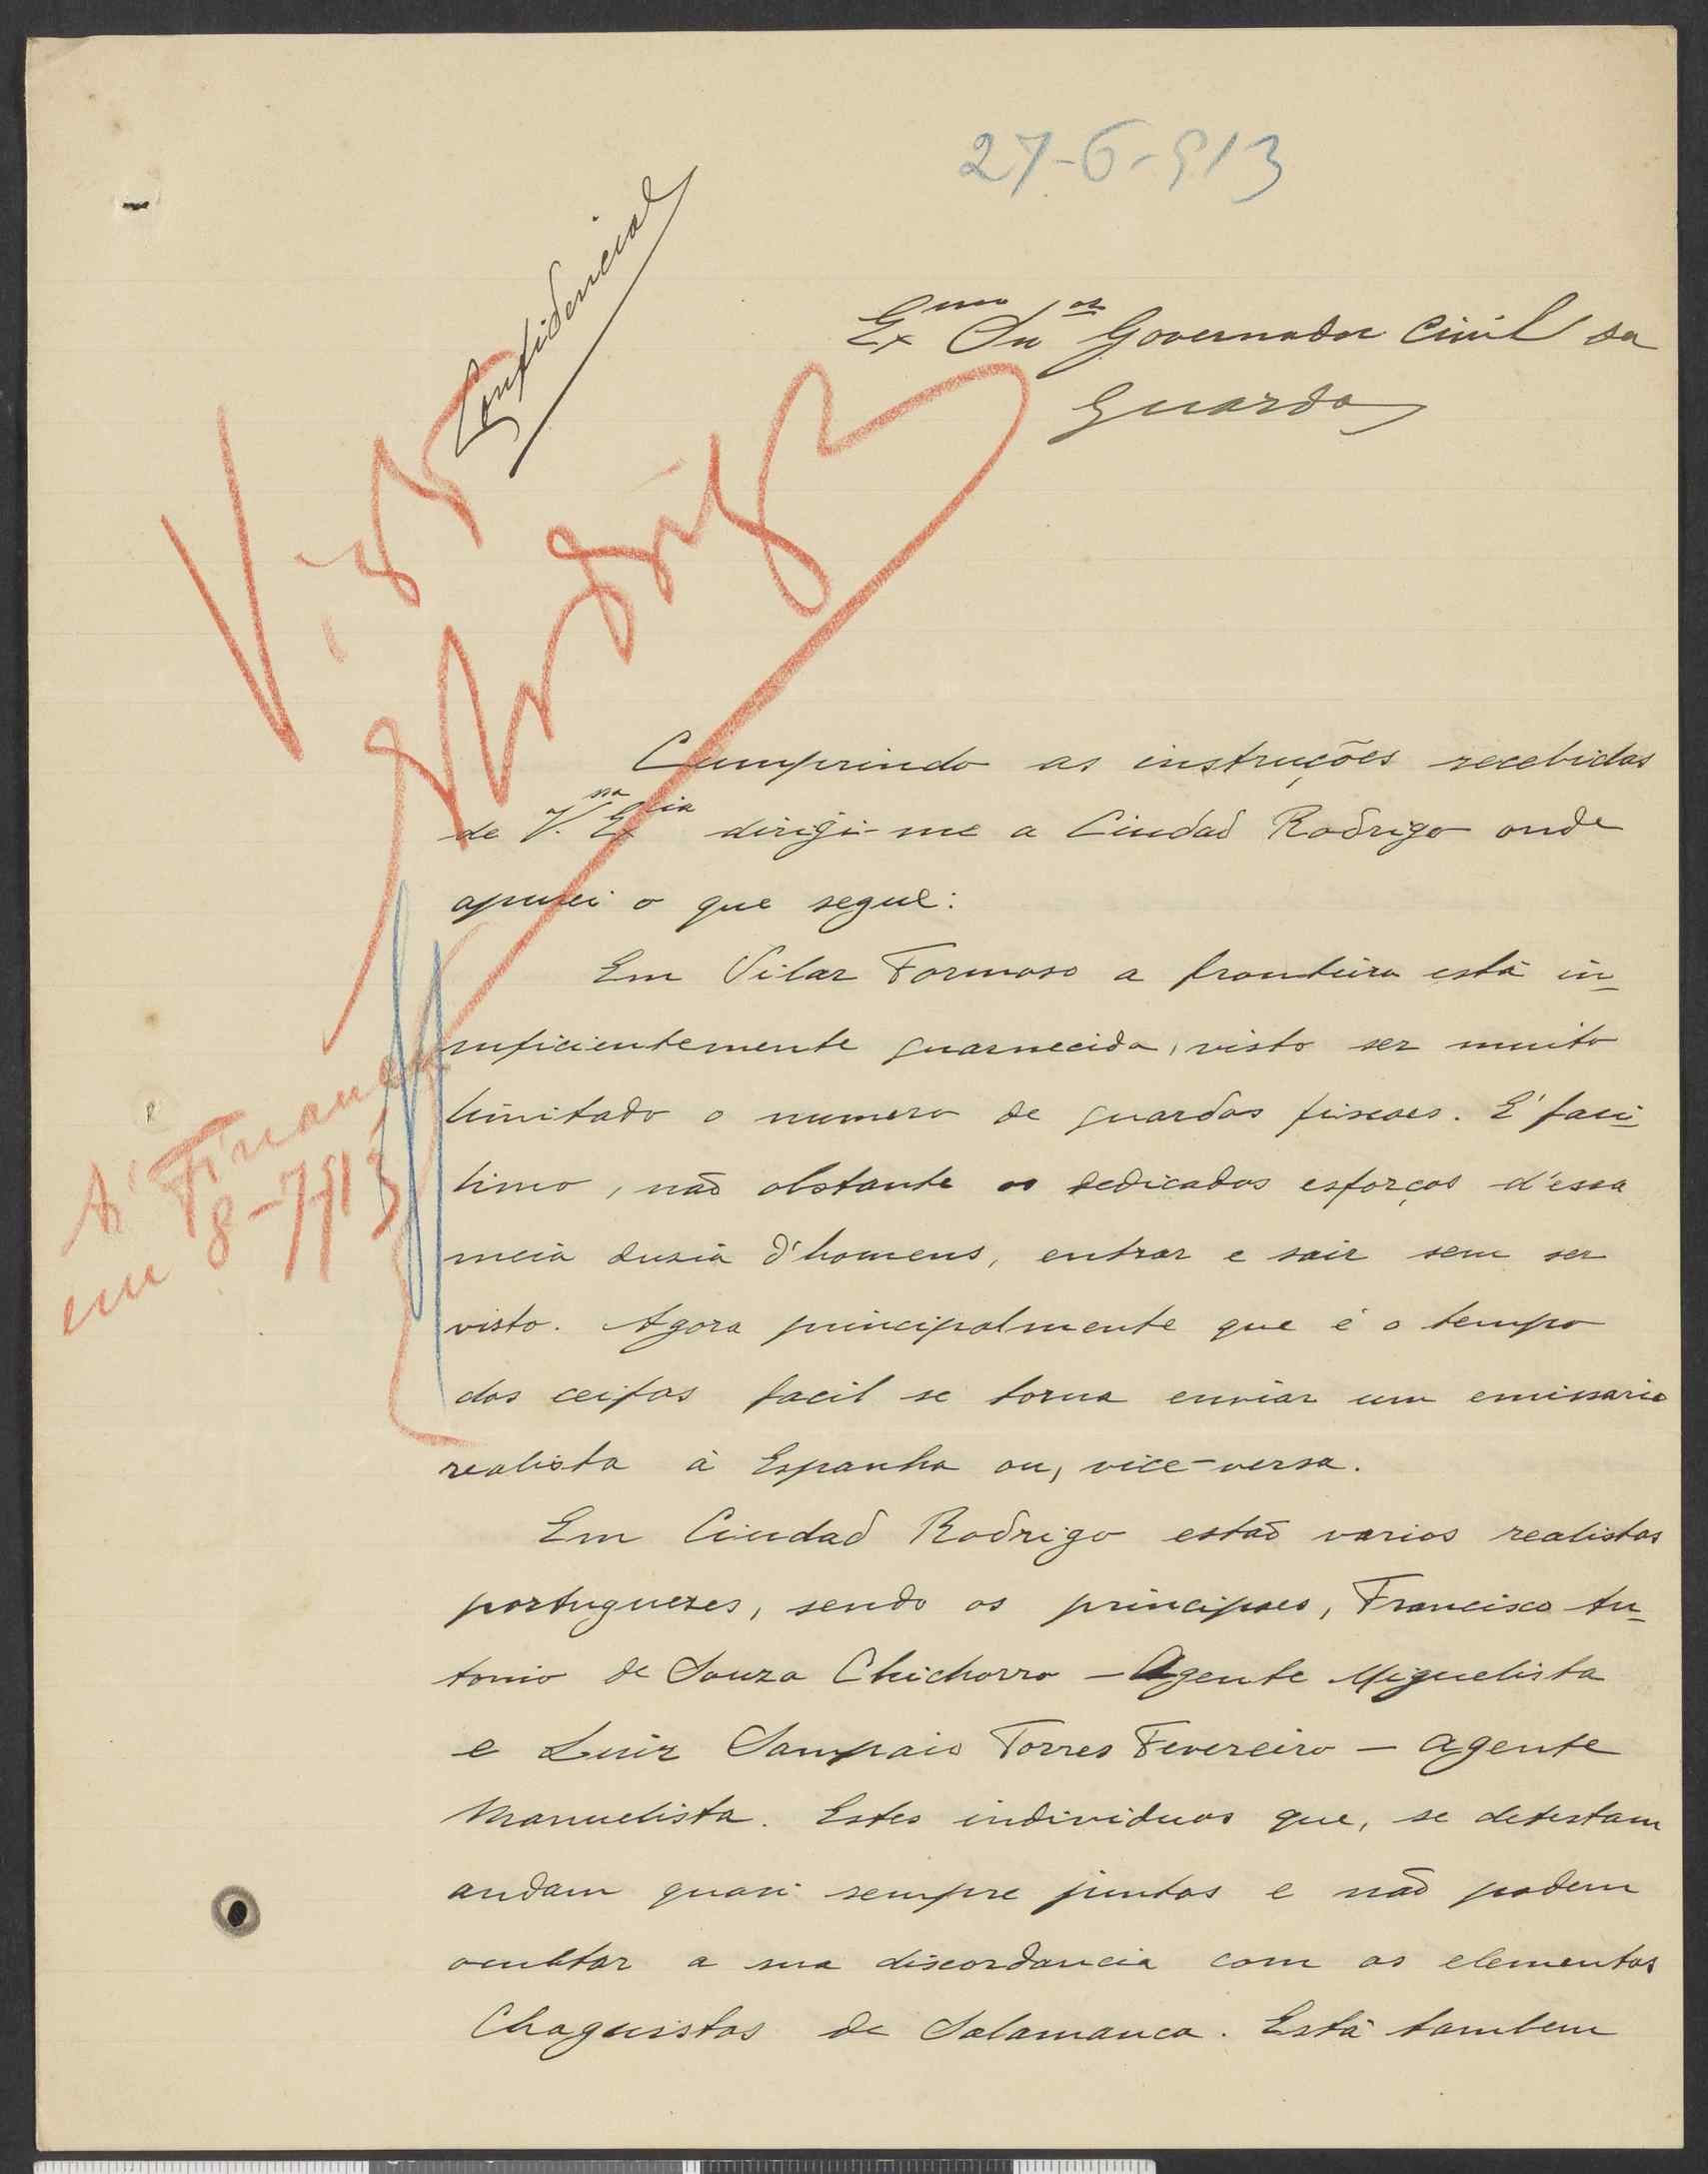 27-6-913
Confidencial
Exmo Snr Governador Civil da
Guarda
Visto
Cumprindo as instruções recebidas
de V. Excia dirigi-me a Ciudad Rodrigo onde
apurei o que segue:
Em Vilar Formoso a fronteira está in-
suficientemente guarnecida, visto ser muito
limitado o numero de guardas fiscaes. E' faci-
limo, não obstante os dedicados esforços d'essa
meia duzia d'homens, entrar e sair sem ser
visto. Agora principalmente que é o tempo
das ceifas facil se torna enviar um emissario
realista á Espanha ou, vice-versa.
A's Finanças
em 8-7-913
Em Ciudad Rodrigo estão varios realistas
portuguezes, sendo os principaes, Francisco An-
tonio de Souza Chichorro - Agente Miguelista
e Luiz Sampaio Torres Fevereiro - agente
Manuelista. Estes individuos que, se detestam
andam quasi sempre juntos e não podem
ocultar a sua discordancia com os elementos
Chaguistas de Salamanca. Está tambem